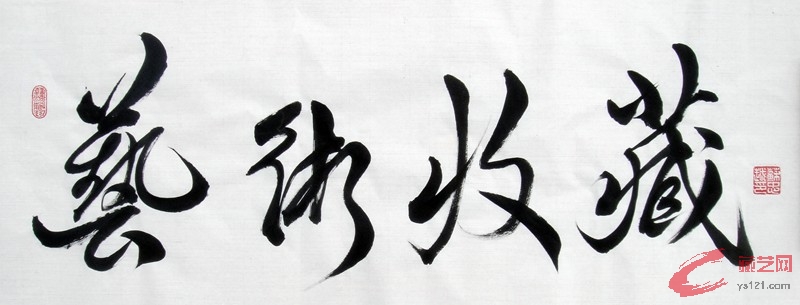 藝術收藏
藏艺网
ys121.com